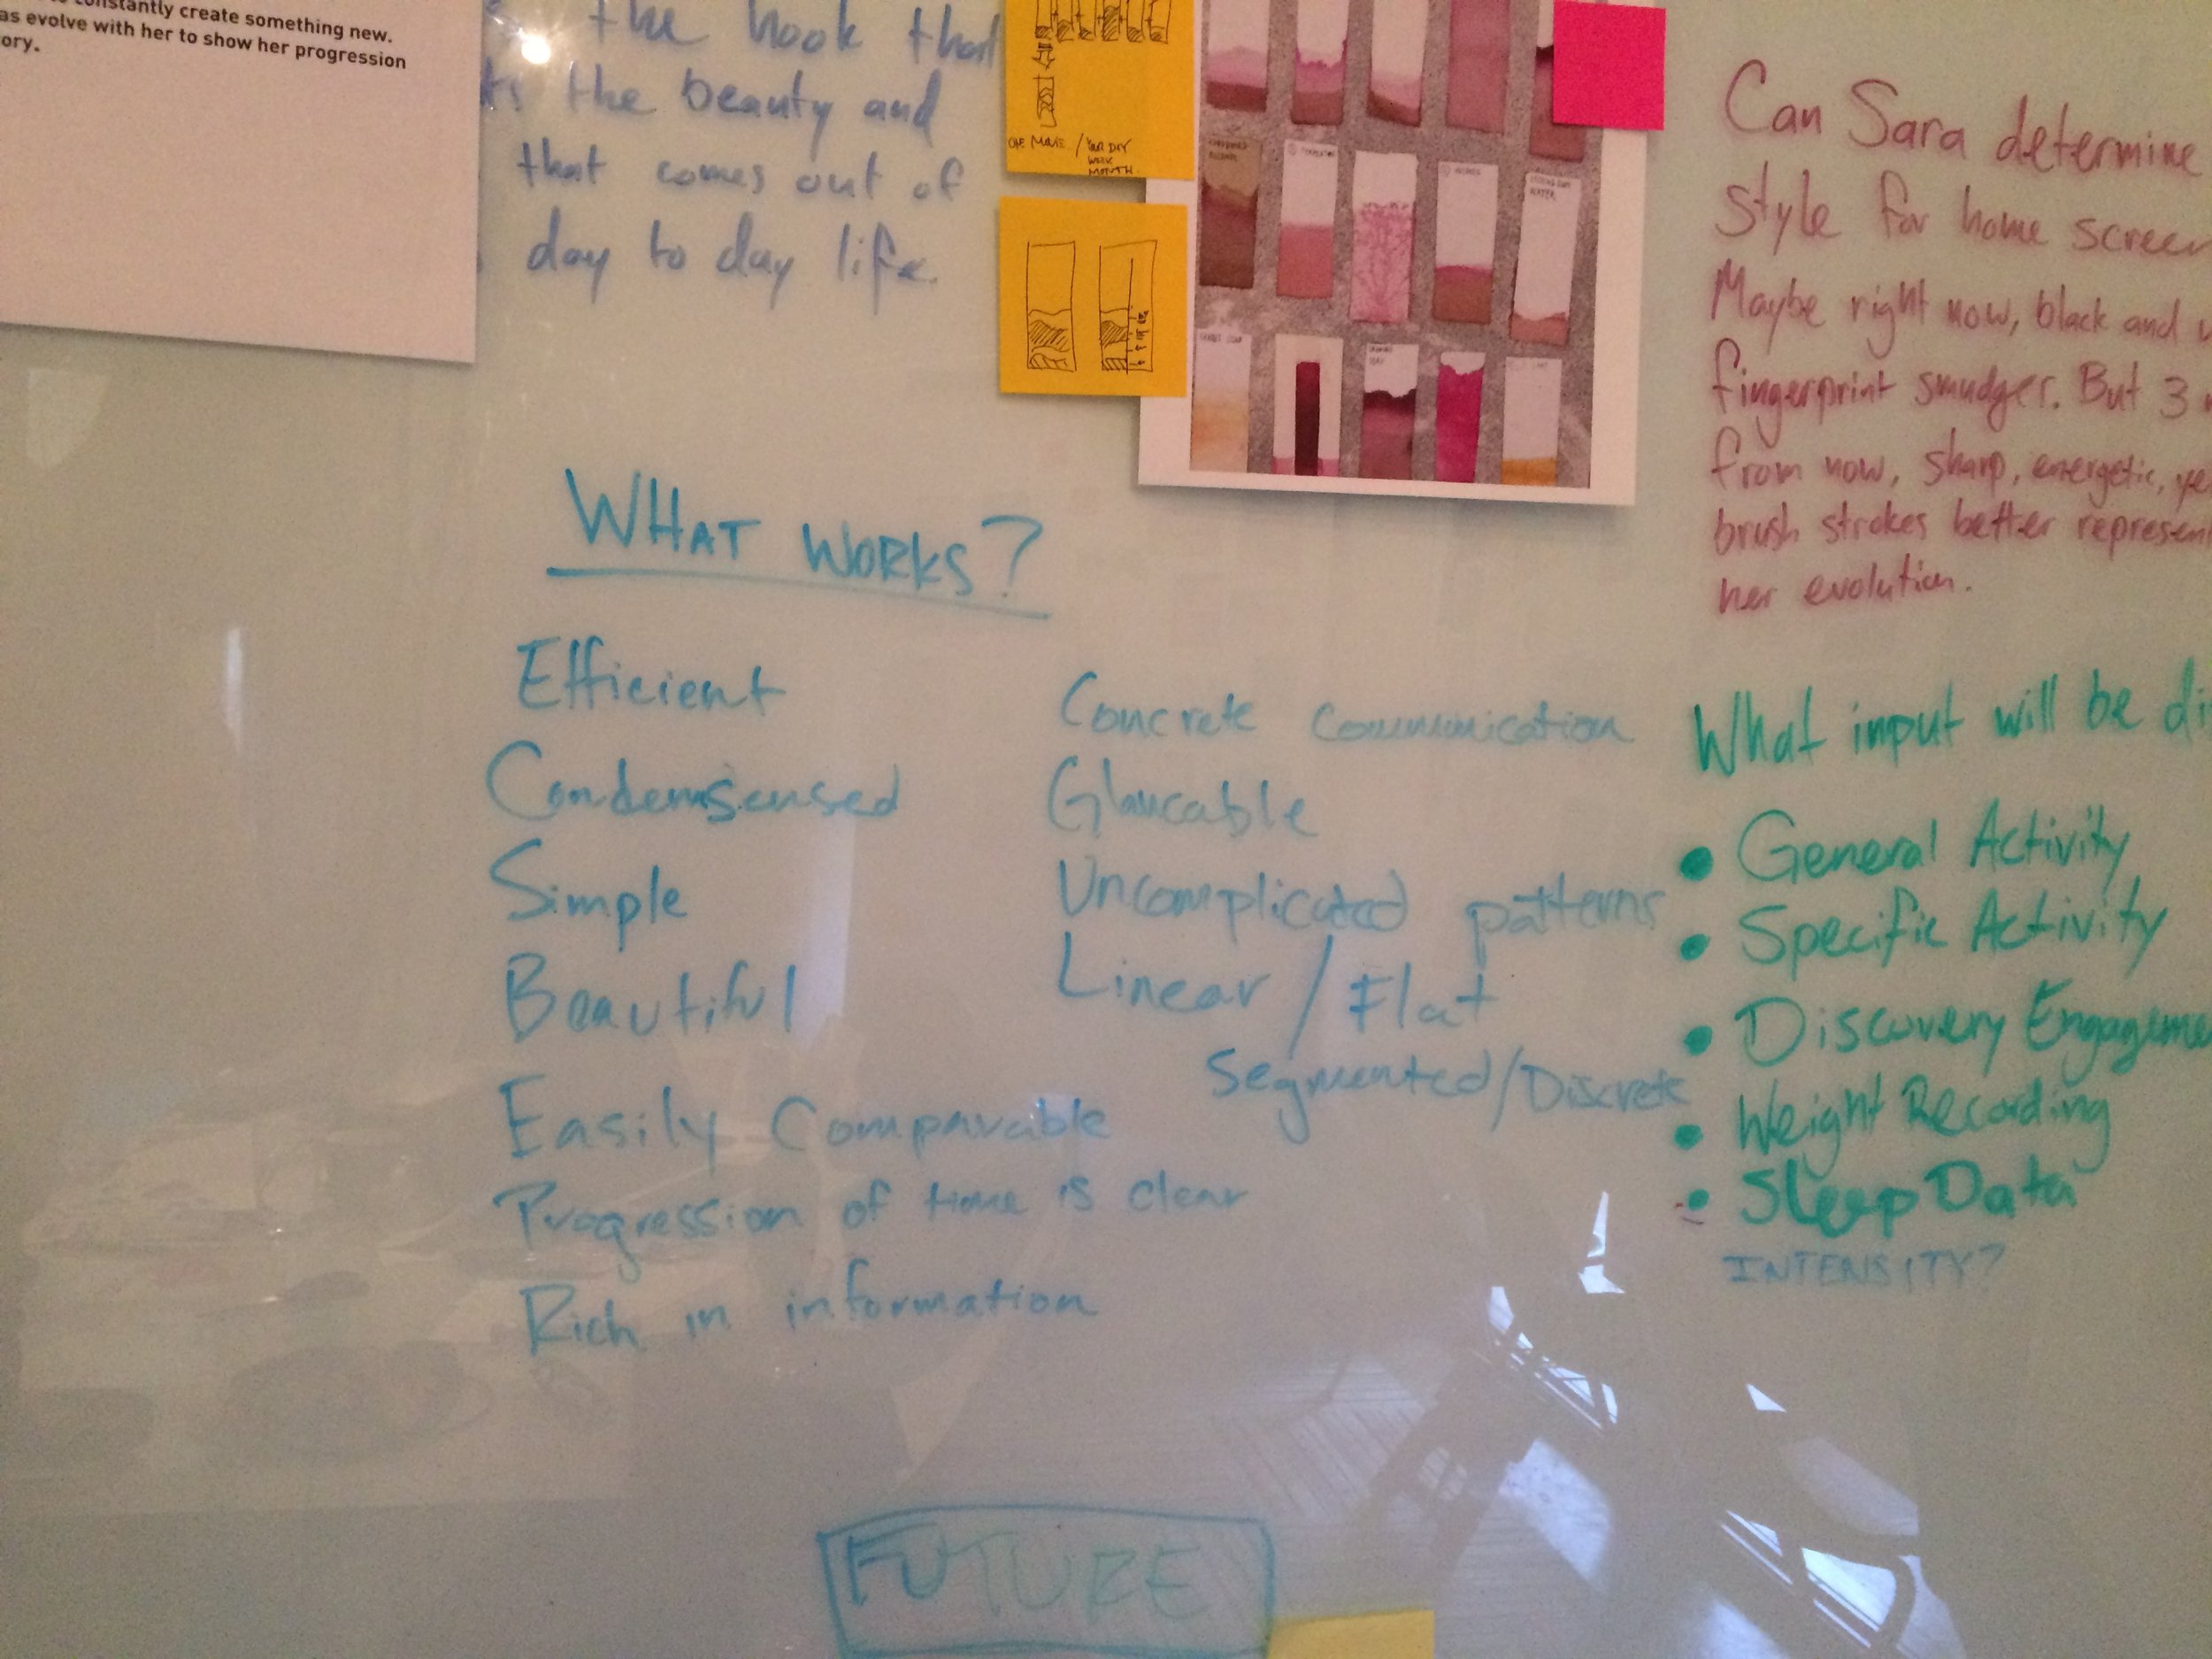 constantly create something new.
as evolve with her to show her progression
ory.
the hook that
the beauty and
that comes out of
day to day life.
ONE MOVE / YOUR DIY
WEEK
MONTH.
Can Sara determine
style for home screen
Maybe right now, black and w
fingerprint smudger. But 3
from now, sharp, energetic, ye
brush strokes better represen
her evolution.
WHAT WORKS?
Efficient
Condemsensed
Simple
Beautiful
Easily Comparable
Progression of time is clear
Rich in information
Concrete Communication
Glancable
Uncomplicated patterns
Linear / Flat
Segmented/Discrete
What input will be di
• General Activity
• Specific Activity
• Discovery Engageme
• Weight Recording
• Sleep Data
INTENSITY?
FUTURE